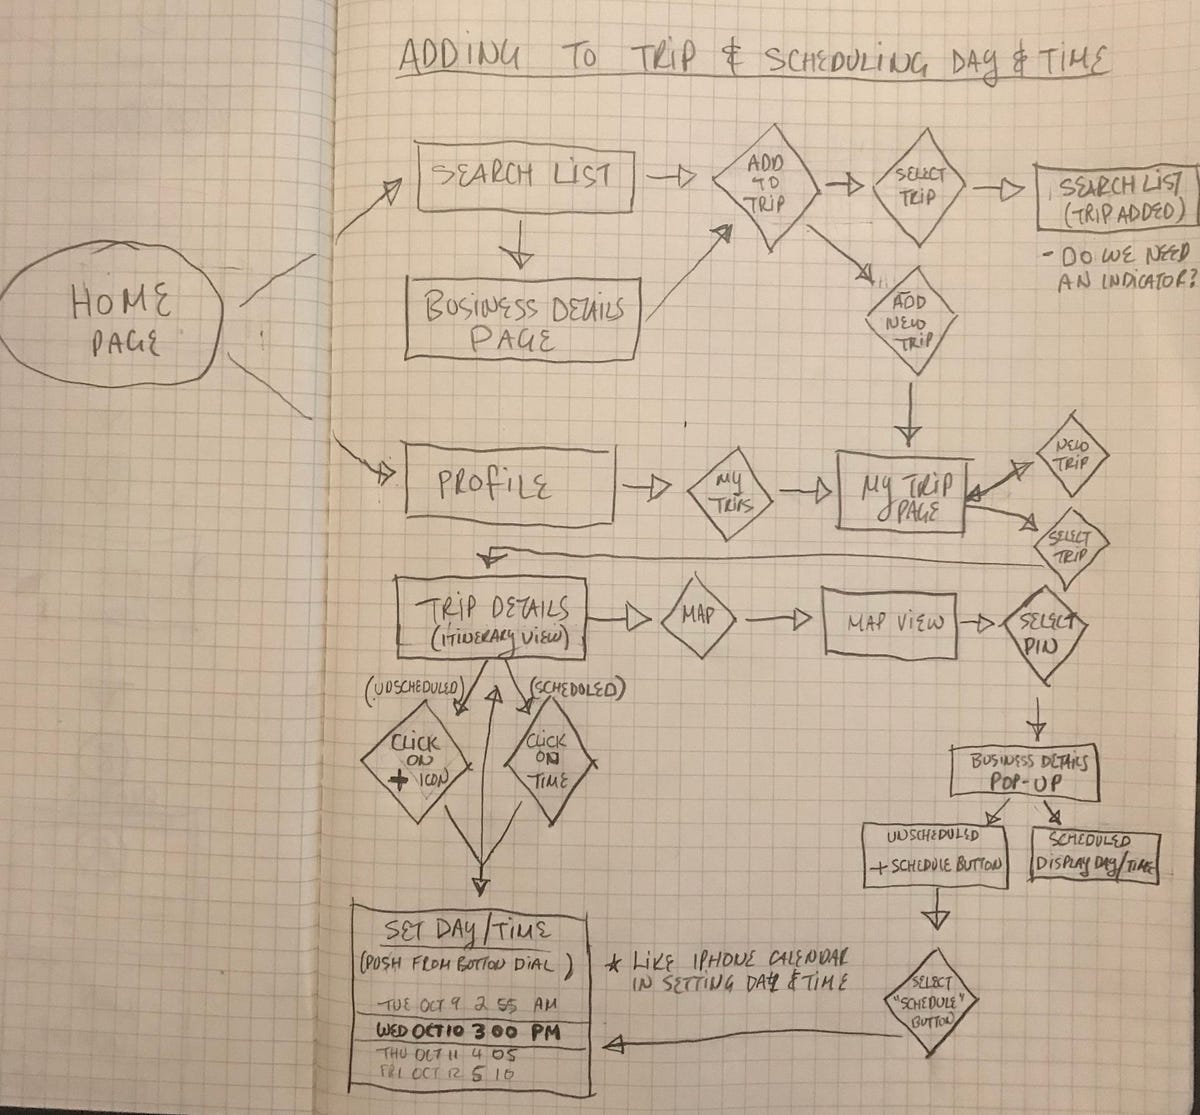 ADDING TO TRIP & SCHEDULING DAY & TIME
HOME
PAGE
SEARCH LIST
BUSINESS DETAILS
PAGE
ADD
TO
TRIP
SELECT
TRIP
SEARCH LIST
(TRIP ADDED)
- DO WE NEED
AN INDICATOR?
ADD
NEW
TRIP
PROFILE
MY
TRIPS
MY TRIP
PAGE
NEW
TRIP
SELECT
TRIP
TRIP DETAILS
(ITINERARY VIEW)
MAP
MAP VIEW
SELECT
PIN
(UNSCHEDULED)
(SCHEDULED)
CLICK
ON
+ ICON
CLICK
ON
TIME
BUSINESS DETAILS
POP-UP
UNSCHEDULED
+ SCHEDULE BUTTON
SCHEDULED
DISPLAY DAY/TIME
SELECT
"SCHEDULE"
BUTTON
SET DAY/TIME
(PUSH FROM BOTTON DIAL)
TUE OCT 9 2 55 AM
WED OCT 10 3 00 PM
THU OCT 11 4 05
FRI OCT 12 5 10
* LIKE IPHONE CALENDAR
IN SETTING DAY & TIME